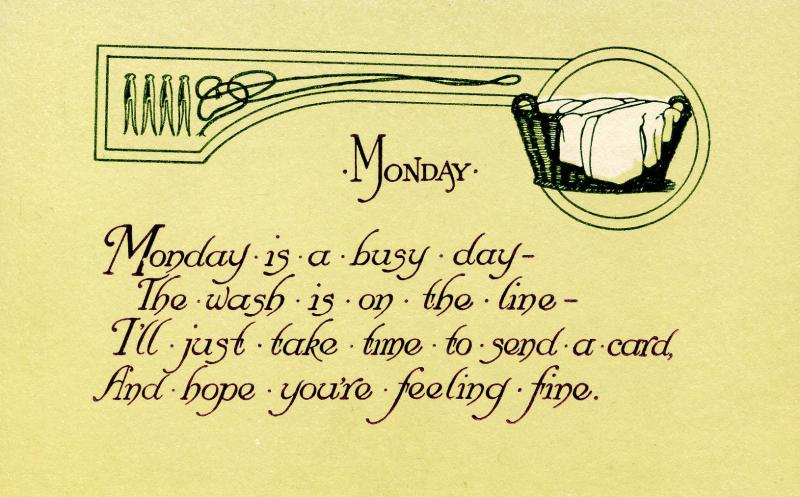 ·Monday·
Monday · is · a · busy · day–
The · wash · is · on · the · line–
I'll · just · take · time · to · send · a · card,
And · hope · you're · feeling · fine.